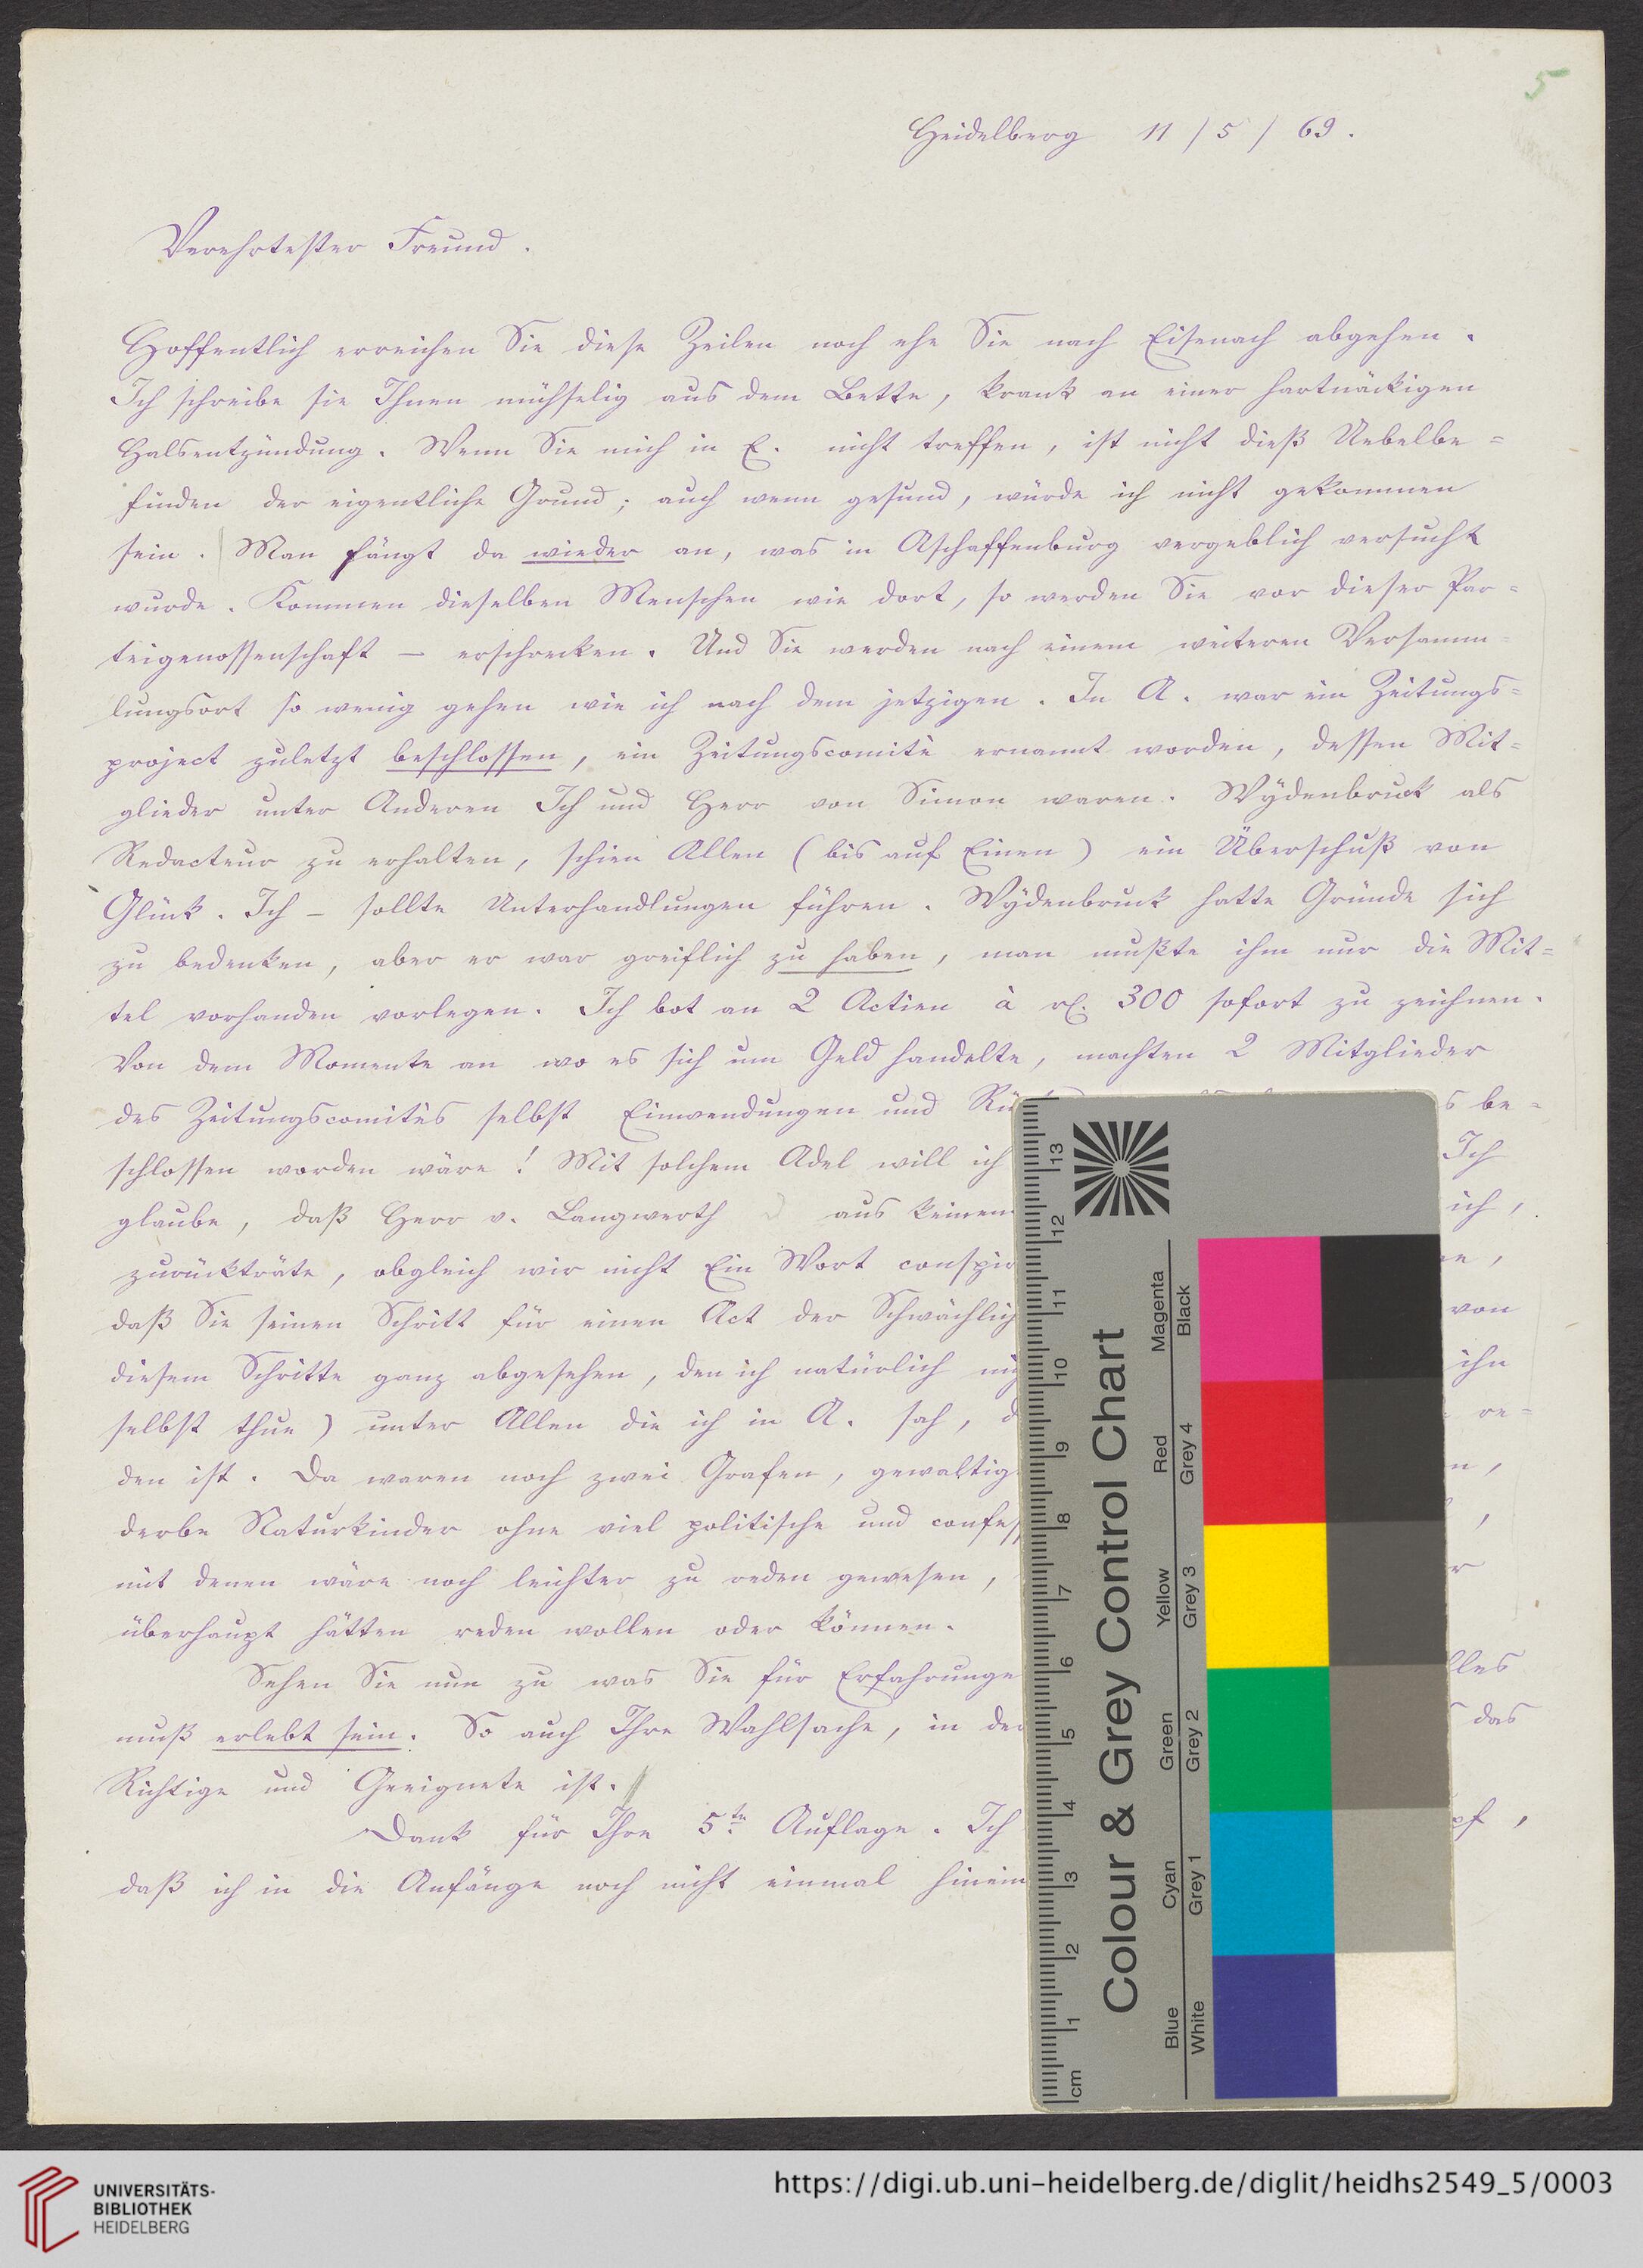 5
Heidelberg 11 / 5 / 69.
Verehrtester Freund.
Hoffentlich erreichen Sie diese Zeilen noch ehe Sie nach Eisenach abgehen.
Ich schreibe sie Ihnen mühselig aus dem Bette, krank an einer hartnäckigen
Halsentzündung. Wenn Sie mich in E. nicht treffen, ist nicht dieß Uebelbe=
finden der eigentliche Grund; auch wenn gesund, würde ich nicht gekommen
sein. Man fängt da wieder an, was in Aschaffenburg vergeblich versucht
wurde. Kommen dieselben Menschen wie dort, so werden Sie vor dieser Par=
teigenossenschaft — erschrecken. Und Sie werden nach einem weiteren Versamm=
lungsort so wenig gehen wie ich nach dem jetzigen. In A. war ein Zeitungs=
project zuletzt beschlossen, ein Zeitungscomité ernannt worden, dessen Mit=
glieder unter Anderen Ich und Herr von Simon waren. Wÿdenbruck als
Redacteur zu erhalten, schien Allen (bis auf Einen) ein Überschuß von
Glück. Ich – sollte Unterhandlungen führen. Wÿdenbruck hatte Gründe sich
zu bedenken, aber er war greiflich zu haben, man mußte ihm nur die Mit=
tel vorhanden vorlegen. Ich bot an 2 Actien à 300 sofort zu zeichnen.
Von dem Momente an wo es sich um Geld handelte, machten 2 Mitglieder
des Zeitungscomités selbst Einwendungen und s be=
schlossen worden wäre! Mit solchem Adel will ich Ich
glaube, daß Herr v. Langwerth aus keinem ich,
zurückträte, obgleich wir nicht Ein Wort conspir
daß Sie seinen Schritt für einen Act der Schwächlich von
diesem Schritte ganz abgesehen, den ich natürlich ihn
selbst thue) unter Allen die ich in A. sah, re=
den ist. Da waren noch zwei Grafen, gewaltig n,
derbe Naturkinder ohne viel politische und confess ,
mit denen wäre noch leichter zu reden gewesen, r
überhaupt hätten reden wollen oder können.
Sehen Sie nun zu was Sie für Erfahrunge lles
muß erlebt sein. So auch Ihre Wahlsache, in der das
Richtige und Geeignete ist.
Dank für Ihre 5te Auflage. Ich pf,
daß ich in die Anfänge noch nicht einmal hinein
Colour & Grey Control Chart
Magenta Black
Red Grey 4
Yellow Grey 3
Green Grey 2
Cyan Grey 1
Blue White
13
12
11
10
9
8
7
6
5
4
3
2
1
cm
UNIVERSITÄTS-
BIBLIOTHEK
HEIDELBERG
https://digi.ub.uni-heidelberg.de/diglit/heidhs2549_5/0003